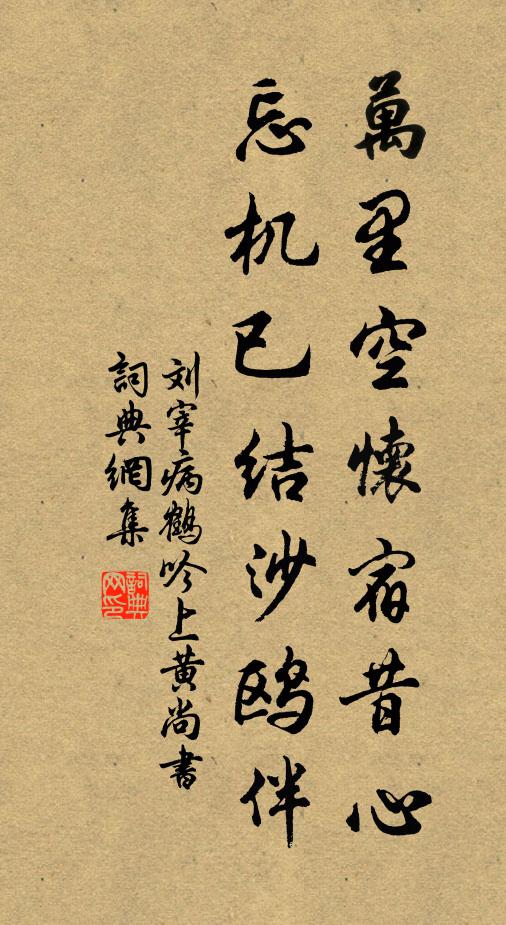 萬里空懷宿昔心
忘机已结沙鸥伴
刘宰病鶴吟上黄尚書
詞典網集
詞典网印